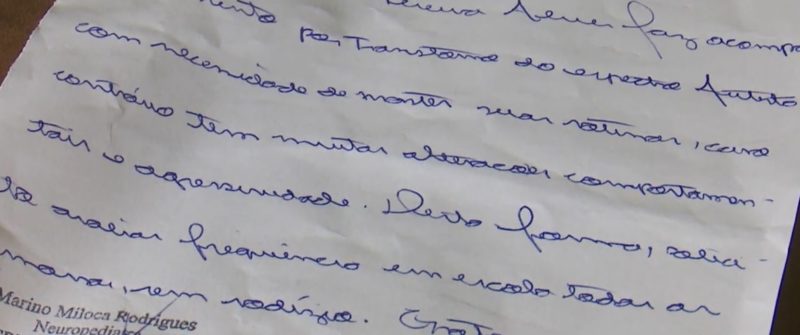 faz acompa
mento por Transtorno do espectro Autista
com necessidade de manter suas rotinas, caso
contrário tem muitas alterações comportamen-
tais e agressividade. Desta forma, solici-
to avaliar frequência em escola todas as
manhas, sem rodízio. Grato
Marino Miloca Rodrigues
Neuropediat